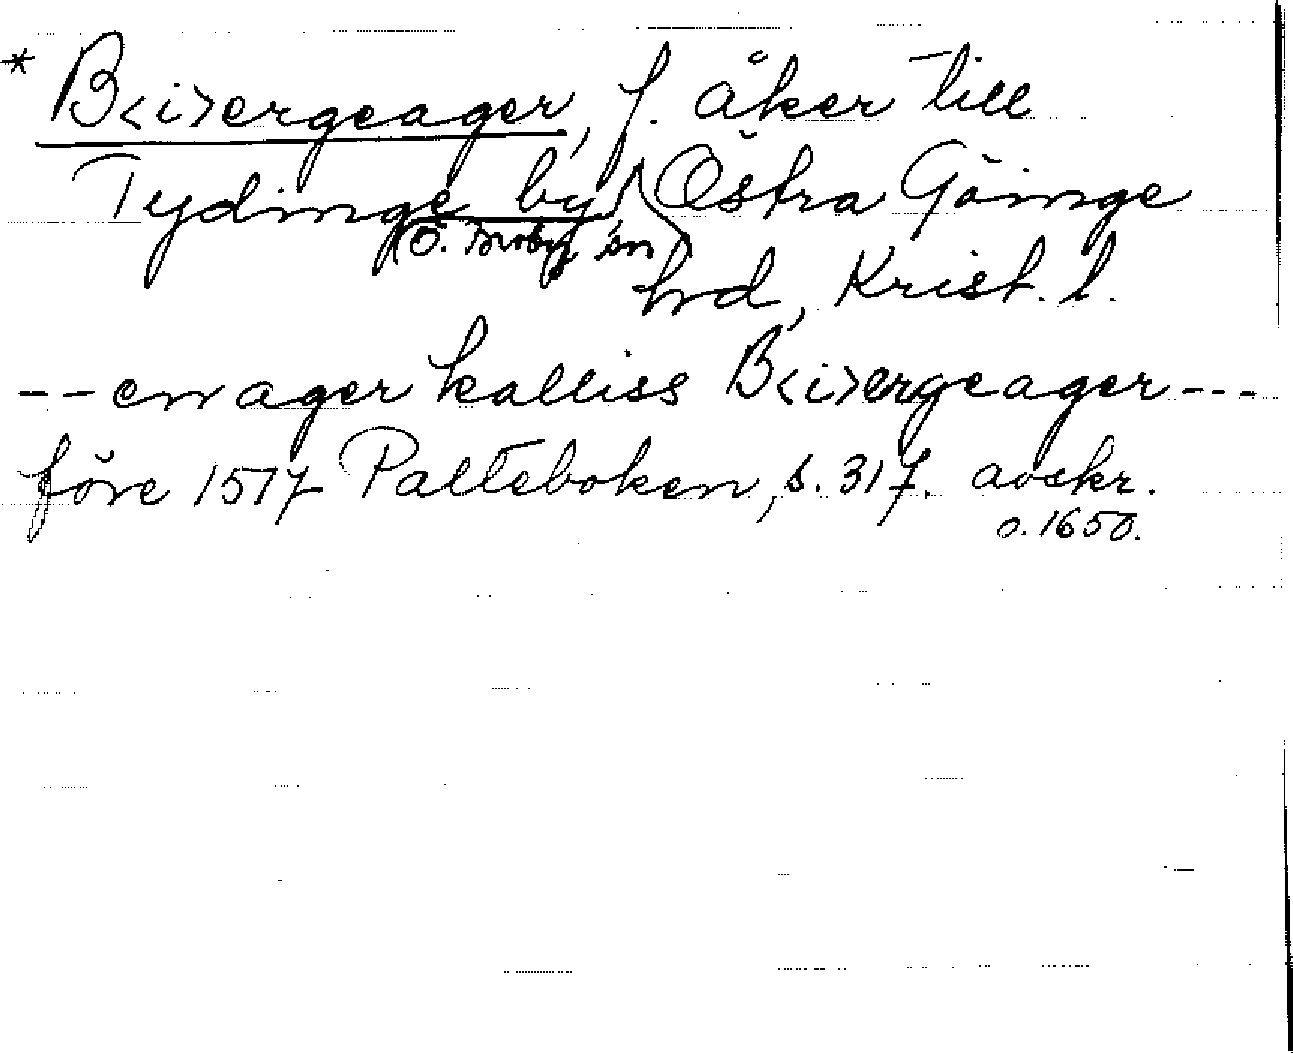 * B<i>ergeager, f. åker till
Tydinge by, Östra Göinge
(Ö. Broby sn)
hrd, Krist. l.
-- en ager kalliss B<i>ergeager ---
före 1517 Palteboken, s. 317. avskr.
o. 1650.